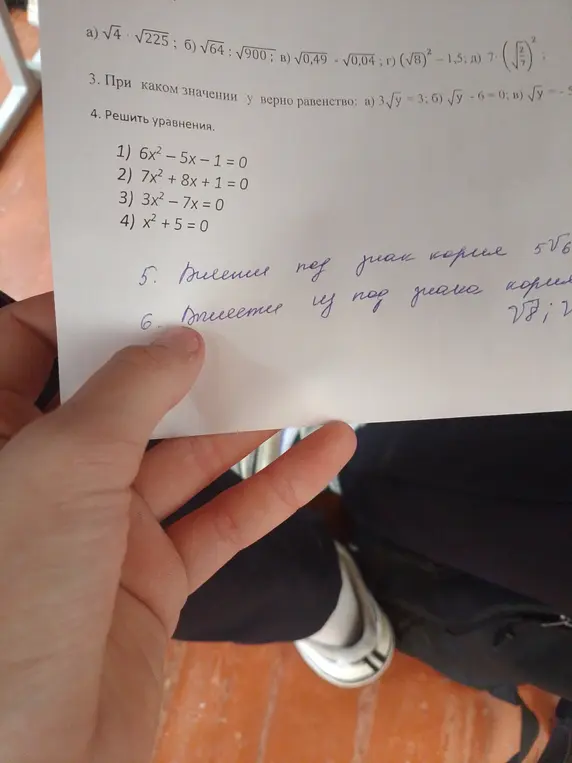 а) √4 · √225 ; б) √64 : √900 ; в) √0,49 - √0,04 ; г) (√8)² – 1,5; д) 7· (√(2/7))² ;
3. При каком значении у верно равенство: а) 3√y = 3; б) √y - 6 = 0; в) √y = -
4. Решить уравнения.
1) 6x² – 5x – 1 = 0
2) 7x² + 8x + 1 = 0
3) 3x² – 7x = 0
4) x² + 5 = 0
5. Внести под знак корня 5√6
6. Вынести из под знака корня
√8 ; √